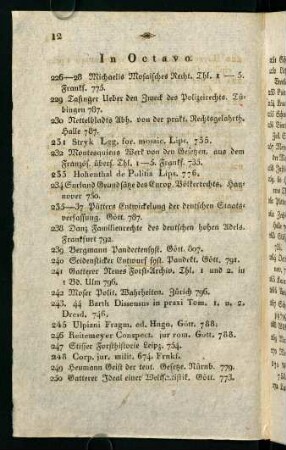 12
In Octavo.
226—28 Michaelis Mosaisches Recht. Thl. 1 — 5.
Frankf. 775.
229 Tafinger Ueber den Zweck des Polizeirechts. Tü-
bingen 787.
230 Nettelbladts Abh. von der prakt. Rechtsgelahrth.
Halle 787.
231 Stryk Leg. for. mosaic. Lips. 735.
232 Montesquieus Werk von den Gesetzen, aus dem
Französ. übers. Thl. 1—5. Frankf. 753.
233 Hohenthal de Politia Lips. 776.
234 Grundsätze des Europ. Völkerrechts. Han-
nover 750.
235—37 Pütters Entwickelung der deutschen Staats-
verfassung. Gött. 787.
238 Danz Familienrecht des deutschen hohen Adels.
Frankfurt 792.
239 Bergmann Pandectensyst. Gött. 807.
240 Seidensticker Entwurf syst. Pandekt. Gött. 791.
241 Gatterer Neues Forst-Archiv. Thl. 1 und 2. in
1 Bd. Ulm 796.
242 Moser Polit. Wahrheiten. Zürich 796.
243. 44 Berth Dissensus in praxi Tom. 1. u. 2.
Dresd. 746.
245 Ulpiani Fragm. ed. Hugo, Gött. 788.
246 Reitemeyer Conspect. jur rom. Gött. 788.
247 Stisser Forsthistorie Leipz. 754.
248 Corp. jur. milit. 674. Frnkf.
249 Heumann Geist der teut. Gesetze. Nürnb. 779.
250 Gatterer Ideal einer Weltstatistik. Gött. 773.